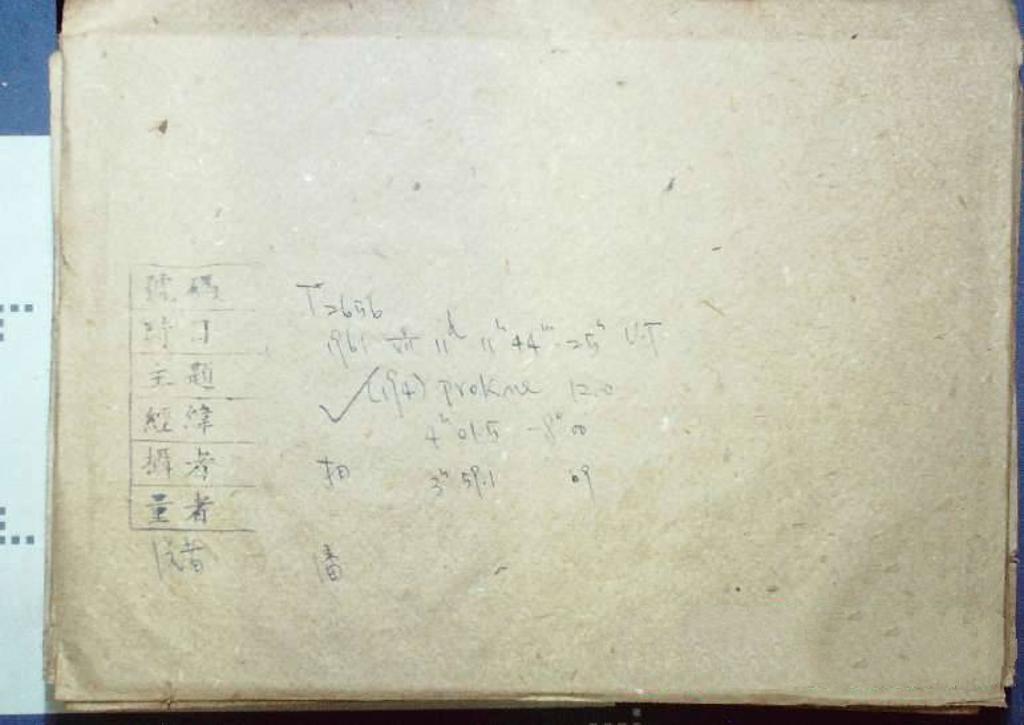 號碼 T2656
時刻 1961 VII 11ᵈ 11ʰ 44ᵐ-25ˢ U.T
主題 ✓(194) prokne 12.0
經緯 4ʰ 01.5 -8° 00
攝者 3ʰ 59.1 09
量者
潘